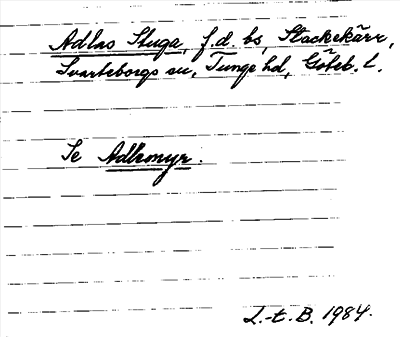 Adlas Stuga, f.d. bs, Stackekärr,
Svarteborgs sn, Tunge hd, Göteb. l.
Se Adlemyr.
L.-t. B. 1984.